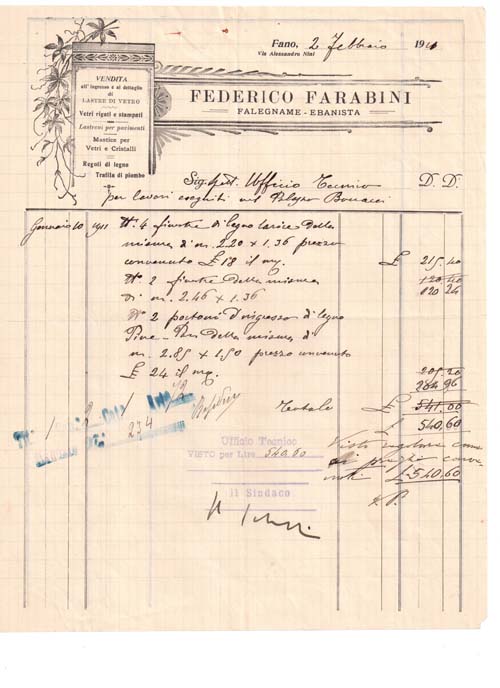 Fano, 2 Febbraio 1911
Via Alessandro Nini
VENDITA
all'ingrosso e al dettaglio
di
LASTRE DI VETRO
Vetri rigati e stampati
Lastroni per pavimenti
Mastice per
Vetri e Cristalli
Regoli di legno
Trafila di piombo
FEDERICO FARABINI
FALEGNAME - EBANISTA
Ufficio Tecnico D. D.
per lavori eseguiti nel Palazzo
Gennaio 10 1911 N. 4 finestre di legno larice della
misura di m. 2.20 x 1.36 prezzo
convenuto £ 18 il mq. £ 215.40
N. 2 finestre della misura 120 40
di m. 2.46 x 1.36 120 24
N. 2 portoni d'ingresso di legno
Pine della misura di
m. 2.85 x 1.50 prezzo convenuto
£ 24 il mq. 205.20
204 96
Totale £ 541.00
540,60
234
Ufficio Tecnico
VISTO per Lire 540.60
Visto
£ 540.60
Il Sindaco